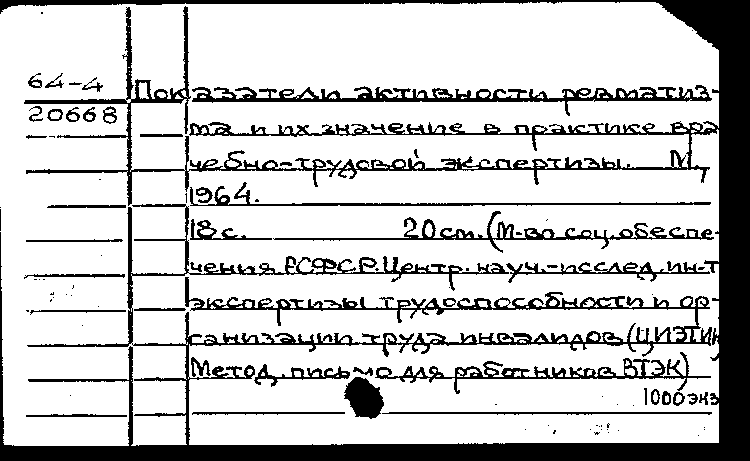 64-4
20668
Показатели активности ревматиз-
ма и их значение в практике вра
чебно-трудовой экспертизы. М.,
1964.
18 с. 20 см. (М-во соц. обеспе-
чения РСФСР. Центр. науч.-исслед. ин-т
экспертизы трудоспособности и ор-
ганизации труда инвалидов (ЦИЭТИН
Метод. письмо для работников ВТЭК)
1000 экз